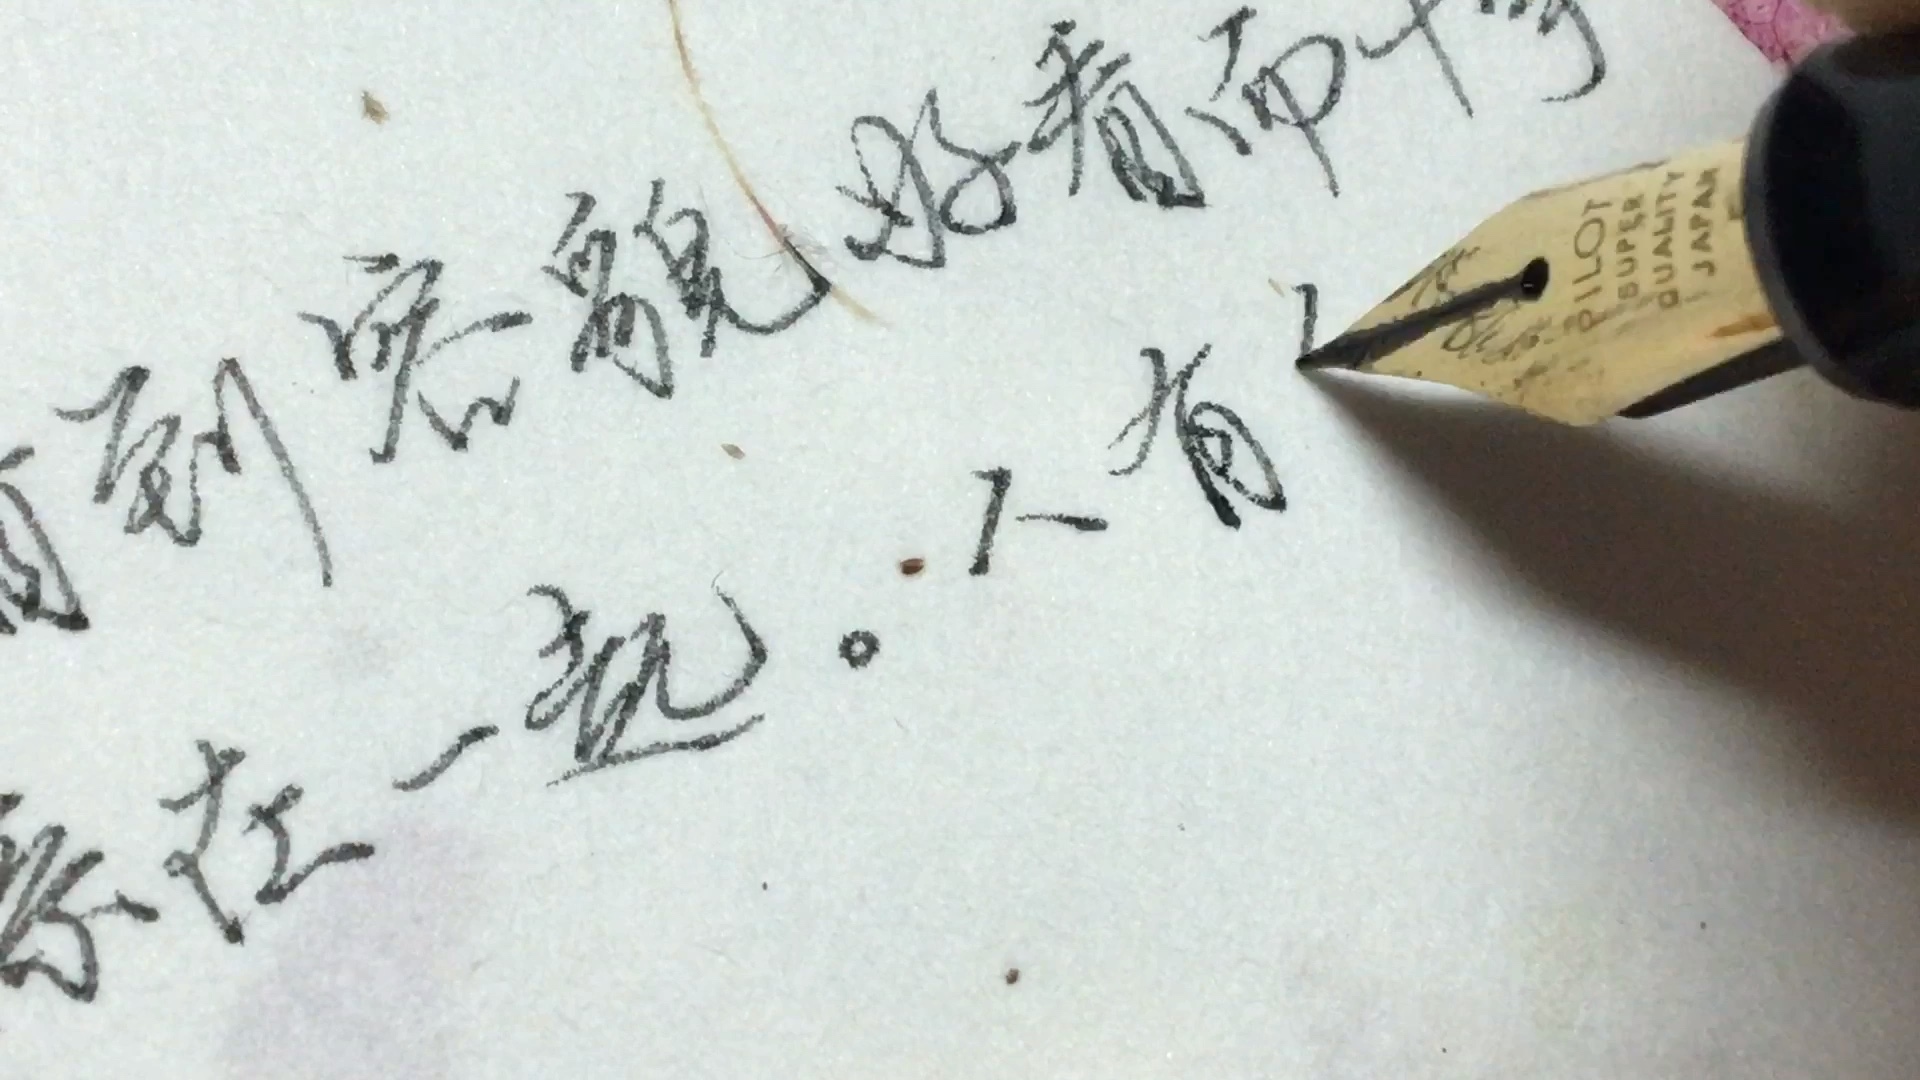 到容貌好看而十
在一起。不有
PILOT
SUPER
QUALITY
JAPAN